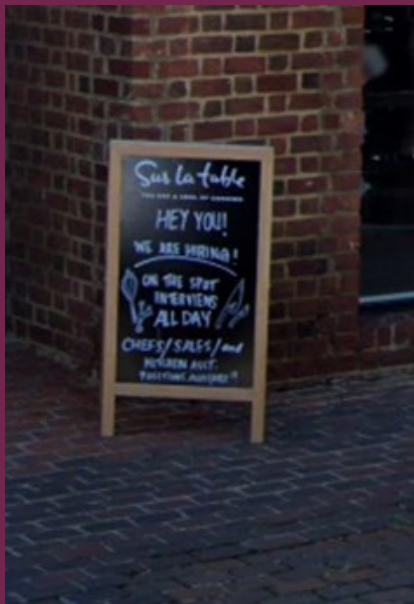 Sur la table
THE ART & SOUL OF COOKING
HEY YOU!
WE ARE HIRING!
ON THE SPOT
INTERVIEWS
ALL DAY
CHEFS/SALES/and
KITCHEN ASST.
POSITIONS AVAILABLE!